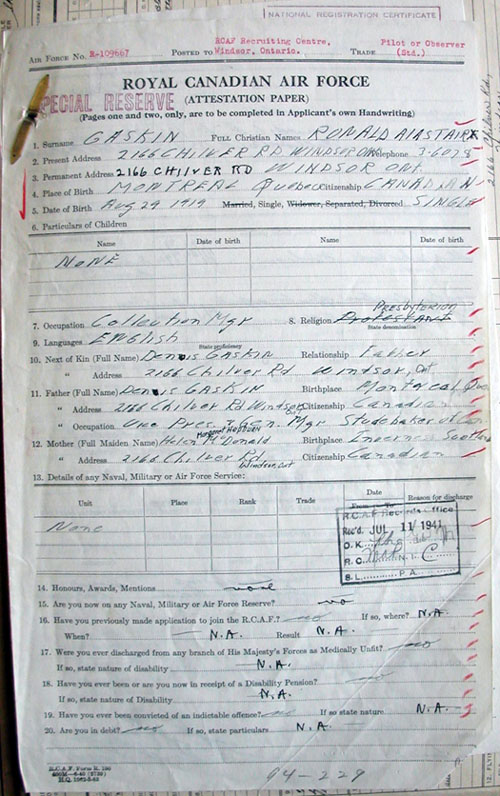 NATIONAL REGISTRATION CERTIFICATE
AIR FORCE No. R-109667 POSTED TO RCAF Recruiting Centre, Windsor, Ontario. TRADE Pilot or Observer (Std.)
ROYAL CANADIAN AIR FORCE
SPECIAL RESERVE (ATTESTATION PAPER)
(Pages one and two, only, are to be completed in Applicant's own Handwriting)
1. Surname GASKIN FULL Christian Names RONALD ALASTAIR
2. Present Address 2166 CHILVER RD WINDSOR ONT Telephone 3-6078
3. Permanent Address 2166 CHILVER RD WINDSOR ONT.
4. Place of Birth MONTREAL Quebec Citizenship CANADIAN
5. Date of Birth Aug 29 1919 Married, Single, Widower, Separated, Divorced SINGLE
6. Particulars of Children
Name Date of birth Name Date of birth
NONE
7. Occupation Collection Mgr 8. Religion Protestant Presbyterian
State denomination
9. Languages ENGLISH
State proficiency
10. Next of Kin (Full Name) Dennis GASKIN Relationship Father
" Address 2166 Chilver Rd Windsor, Ont
11. Father (Full Name) Dennis GASKIN Birthplace Montreal Que
" Address 2166 Chilver Rd Windsor Ont Citizenship Canadian
" Occupation Vice Pres. & Gen. Mgr Studebaker of Can
12. Mother (Full Maiden Name) Helen Margaret McDonald Birthplace Scotland
" Address 2166 Chilver Rd. Windsor, Ont Citizenship Canadian
13. Details of any Naval, Military or Air Force Service:
Unit Place Rank Trade Date From - To Reason for discharge
None
R.C.A.F Records Office
Rec'd. JUL 11 1941
O.K.
R.C. N.I. C
S.L. P.A.
14. Honours, Awards, Mentions none
15. Are you now on any Naval, Military or Air Force Reserve? no
16. Have you previously made application to join the R.C.A.F.? no If so, where? N.A.
When? N.A. Result N.A.
17. Were you ever discharged from any branch of His Majesty's Forces as Medically Unfit? no
If so, state nature of disability N.A.
18. Have you ever been or are you now in receipt of a Disability Pension? no
If so, state nature of Disability N.A.
19. Have you ever been convicted of an indictable offence? no If so state nature N.A.
20. Are you in debt? no If so, state particulars N.A.
R.C.A.F. Form R. 100
H.Q. 1062-3-63
94-229